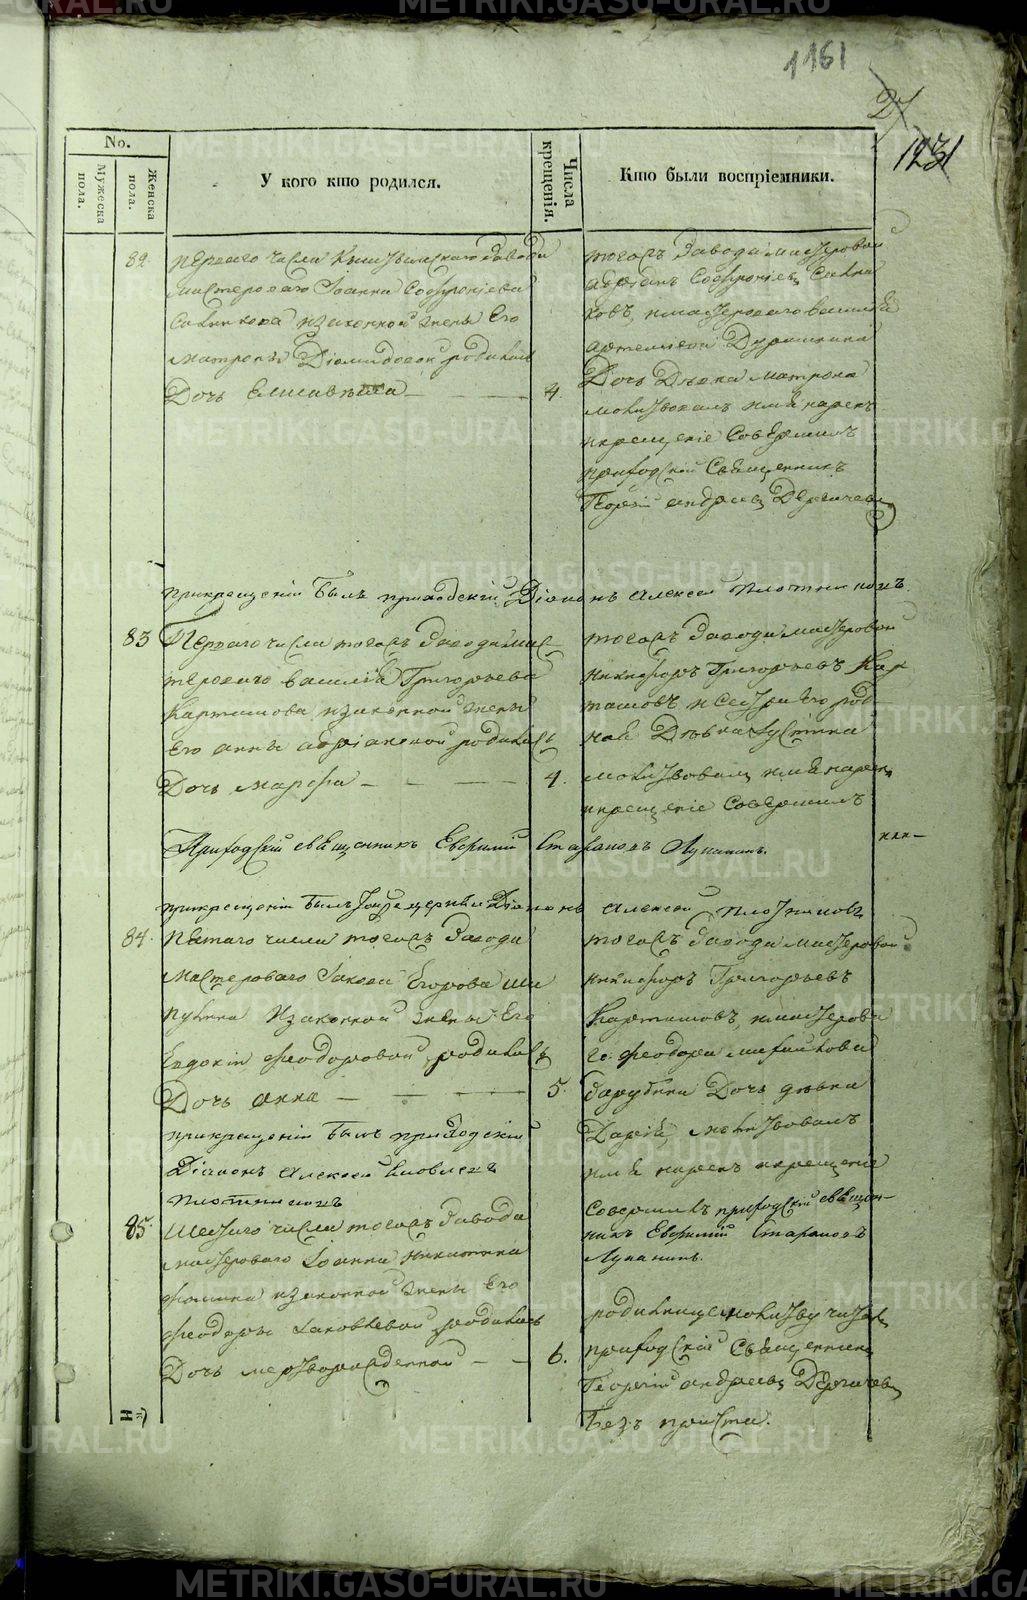 1161
27
1231
No.
Мужеска пола.
Женска пола.
У кого кто родился.
Числа крещенія.
Кто были воспріемники.
82
перваго числа завода
мастероваго Іоанна Софроніева
изаконной жены Его
матроны Діомидовой родилась
Дочь Елисавѣта
4.
тогожъ завода мастеровой
Софроніевъ
имастероваго василія
артемьева
Дочь Дѣвка матрона
молитвовалъ имя нарекъ
икрещеніе Совершилъ
приходскій Священникъ
Георгій андреевъ Держачевъ
прикрещеніи былъ приходскій Діаконъ алексей Плотниковъ
83
Перваго числа тогожъ завода мас
тероваго василія Григорьева
Карташова изаконной жены
Его анны адріановой родилась
Дочь марфа
4.
тогожъ завода мастеровой
никифоръ Григорьевъ Кар
ташовъ исестра Его род
ная Дѣвка Іустина
молитвовалъ имя нарекъ
икрещеніе Совершилъ
Приходскій священникъ Евфимій Стафановъ Лупанинъ.
прикрещеніи былъ Діаконъ Алексей Плотниковъ
84.
Пятаго числа тогожъ завода
мастероваго Іакова Егорова
изаконной жены Его
Евдокіи феодоровой родилась
Дочь анна
5.
тогожъ завода мастеровой
никифоръ Григорьевъ
Карташовъ, имастерова
го феодора михайлова
Зарубина Дочь дѣвка
Дарья, молитвовалъ
имя нарекъ икрещеніе
Совершилъ приходскій священ-
никъ Евфимій Стафановъ
Лупанинъ.
прикрещеніи былъ приходскій
Діаконъ алексей
Плотниковъ
85.
Шестаго числа тогожъ завода
мастероваго Іоанна никитина
изаконной жены Его
феодоры Іаковлевой родилась
Дочь мертворожденной
6.
родильнице молитву читалъ
приходскій Священникъ
Георгій андреевъ Держачевъ
Безъ причта.
METRIKI.GASO-URAL.RU